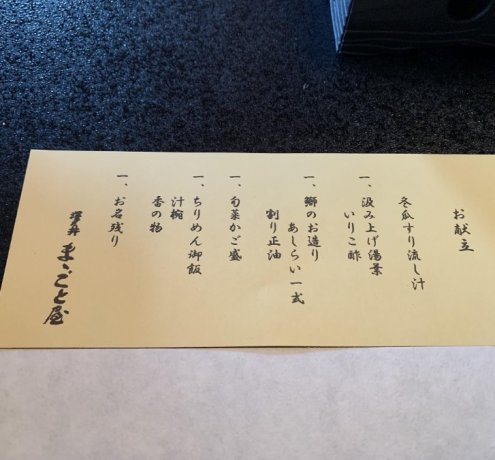 お献立
冬瓜すり流し汁
一、汲み上げ湯葉
いりこ酢
一、鰤のお造り
あしらい一式
割り正油
一、旬菜かご盛
一、ちりめん御飯
汁椀
香の物
一、お名残り
澤乃井 まゝごと屋